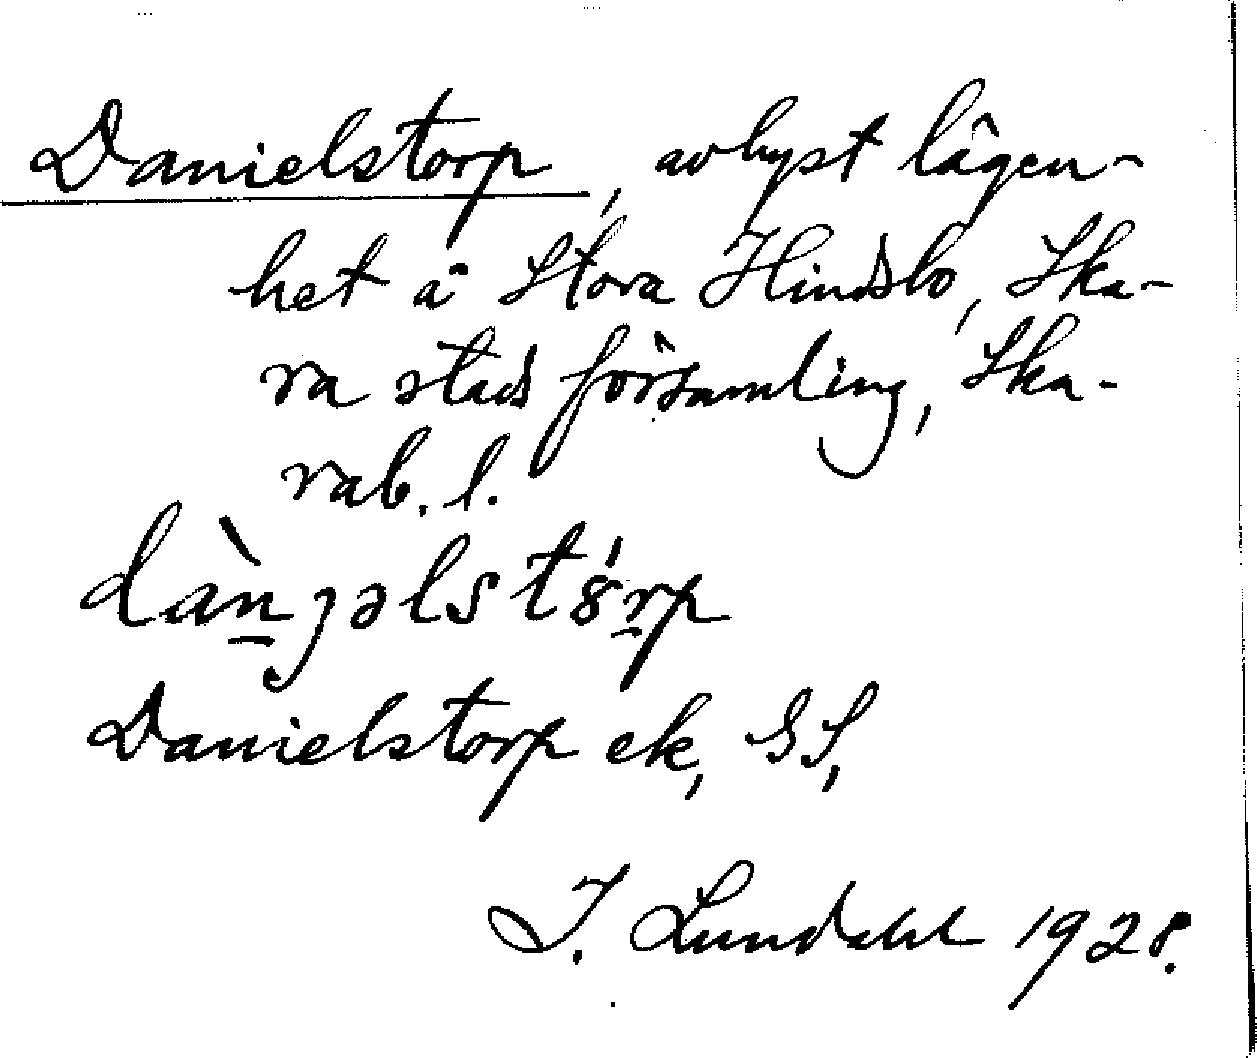 Danielstorp, avhyst lägen-
het å Stora Hindsbo, Ska-
ra stads församling, Ska-
rab. l.
dàn̠ȷəlstȣ́r̠p
Danielstorp ek, GS,
I. Lundahl 1928.